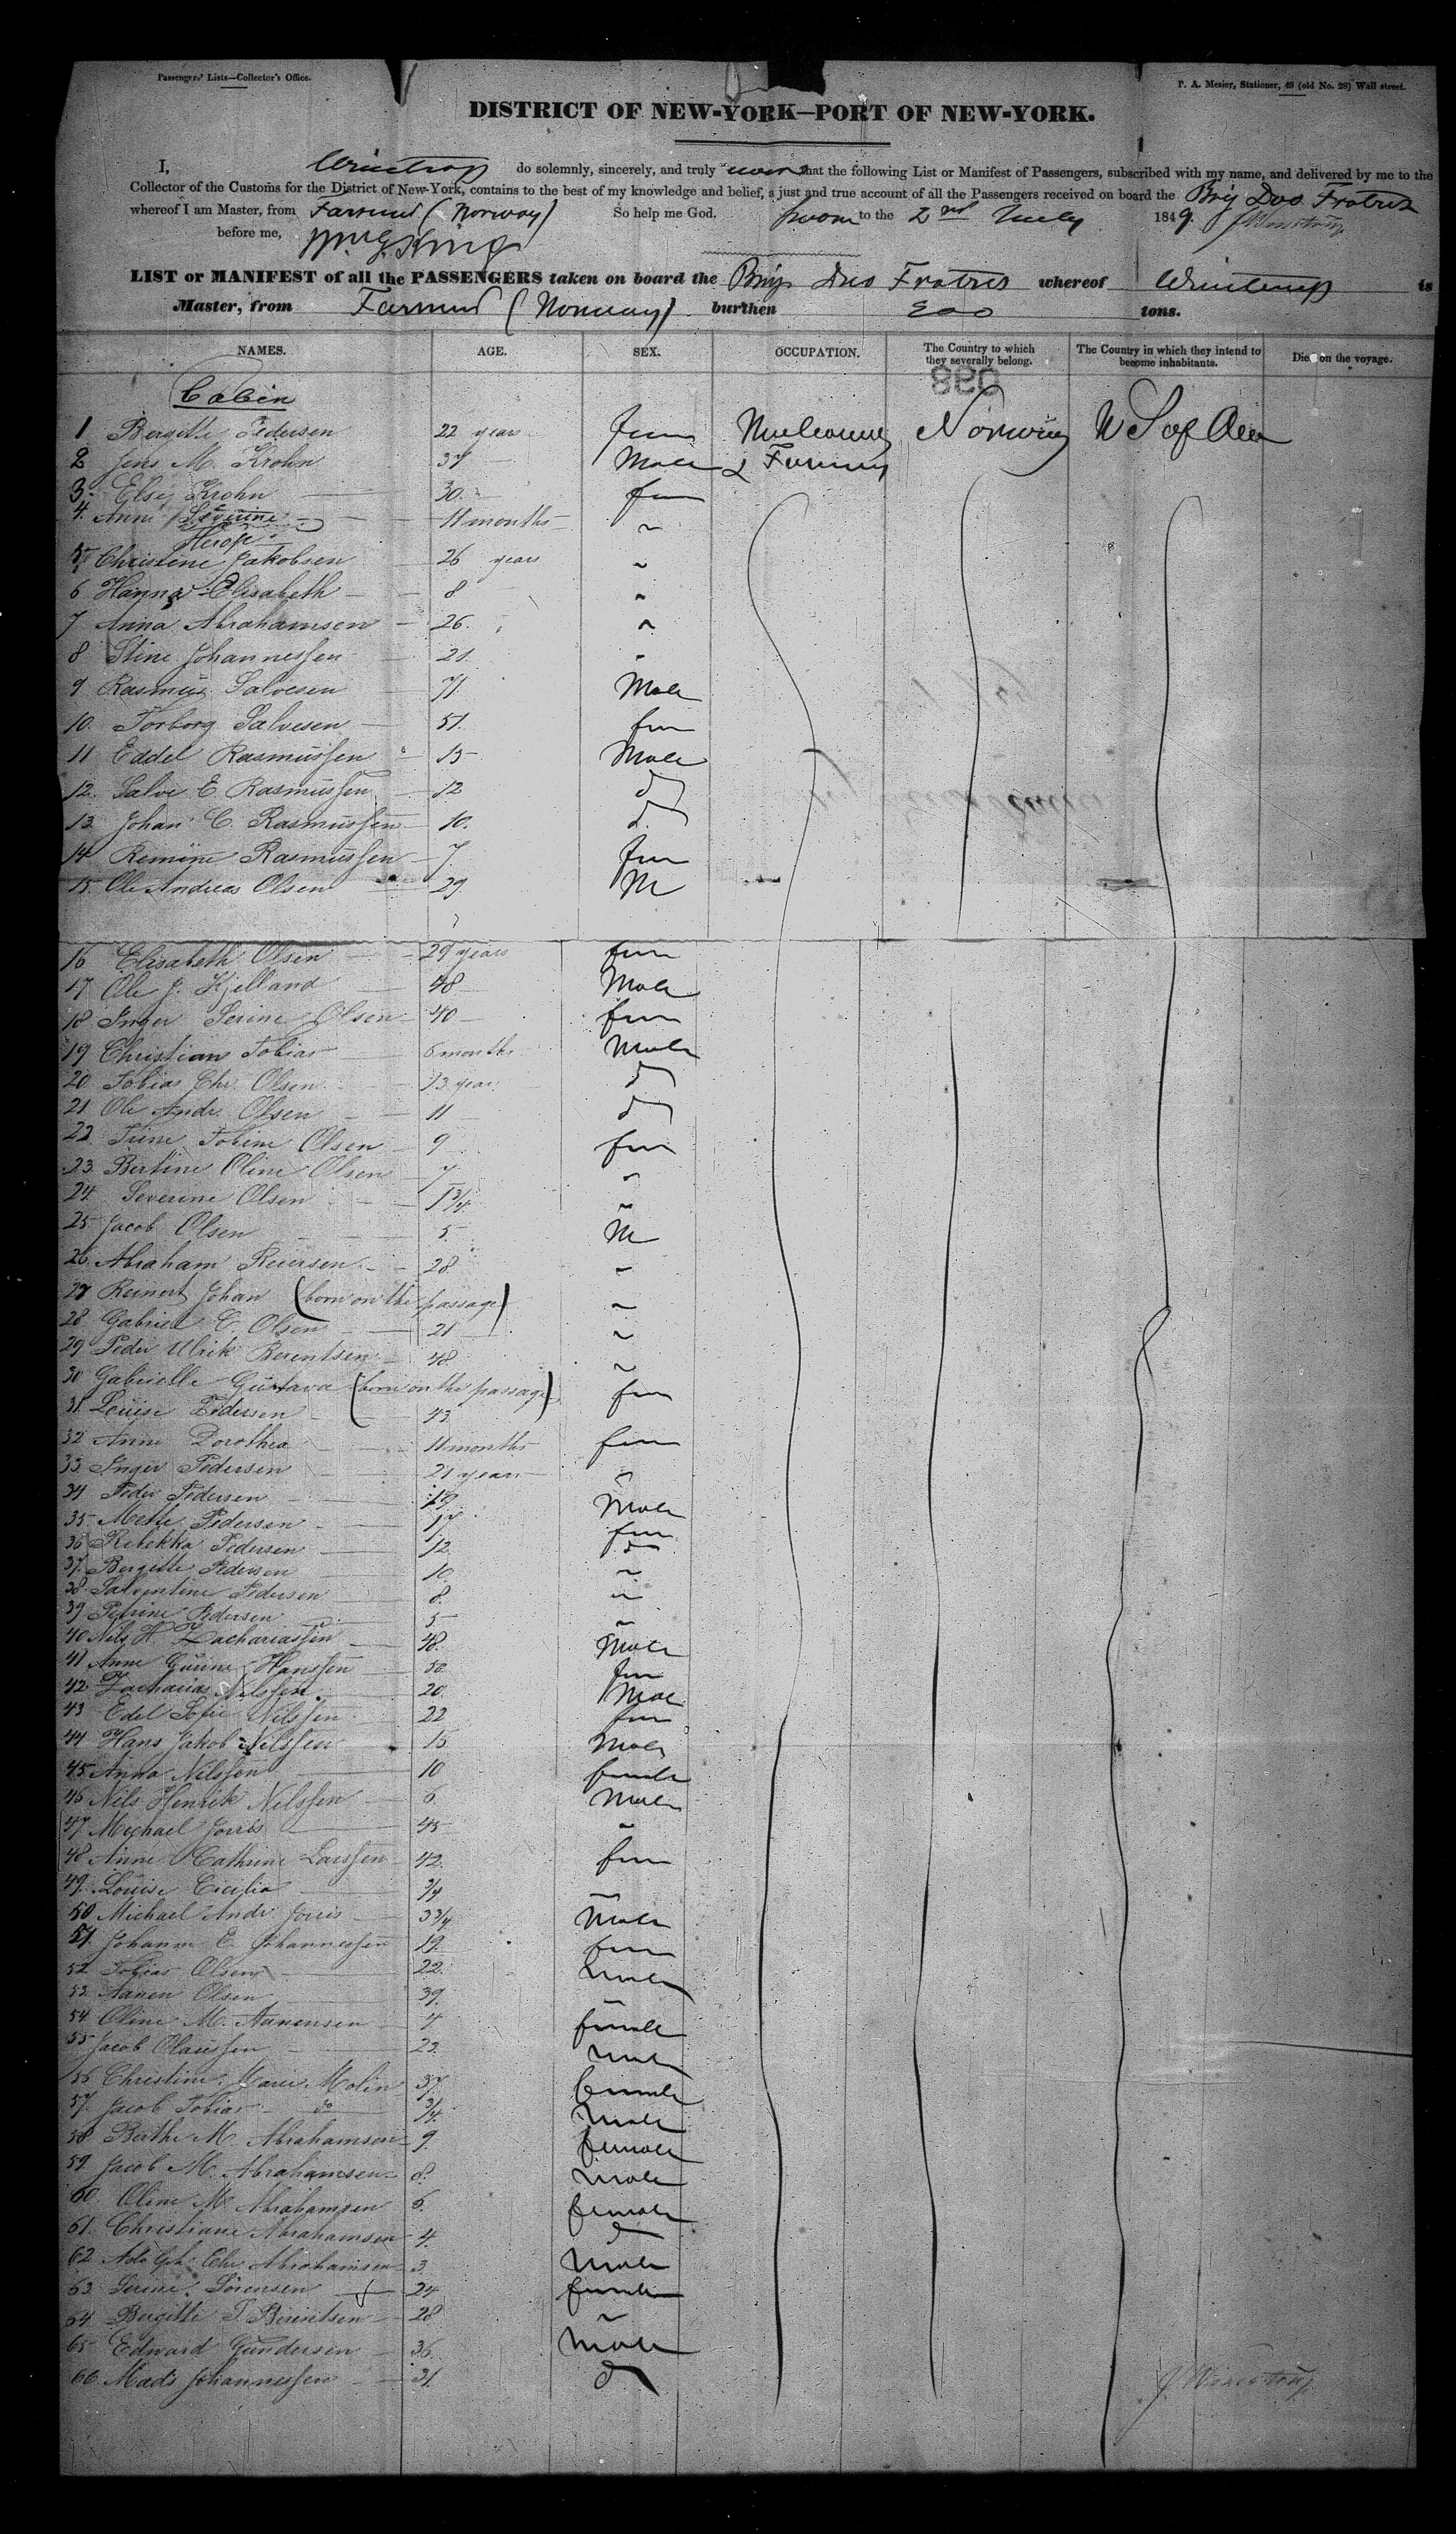 Passengers' Lists—Collector's Office.
P. A. Mesier, Stationer, 49 (old No. 28) Wall street.
DISTRICT OF NEW-YORK—PORT OF NEW-YORK.
I, do solemnly, sincerely, and truly that the following List or Manifest of Passengers, subscribed with my name, and delivered by me to the
Collector of the Customs for the District of New-York, contains to the best of my knowledge and belief, a just and true account of all the Passengers received on board the Brig Duo Fratres
whereof I am Master, from Farsund (Norway) So help me God. Sworn to the 2nd July 1849.
before me,
LIST or MANIFEST of all the PASSENGERS taken on board the Brig Duo Fratres whereof is
Master, from Farsund (Norway) burthen tons.
NAMES. AGE. SEX. OCCUPATION. The Country to which they severally belong. The Country in which they intend to become inhabitants. Died on the voyage.
Cabin
1 Bergitte Pedersen 22 years fem Norway
2 Jens M. Krohn 37 Male & Farmers
3. Elsej Krohn 30. fem
4. Anne Severine 11 months ~
5. Christine Jakobsen 26 years ~
6 Hanna Elisabeth 8 ~
7 Anna Abrahamsen 26. ~
8 Stine Johannessen 21. ~
9 Rasmus Salvesen 71. Male
10. Torborg Salvesen 51. fem
11 Eddel Rasmussen 15 Male
12. Salve E Rasmussen 12 do
13. Johan C. Rasmussen 10. do
14 Remine Rasmussen 7. fem
15. Ole Andreas Olsen 29. M
16 Elisabeth Olsen 29 years fem
17 Ole J. Kjelland 48 Male
18 Inger Serine Olsen 40 fem
19 Christian Tobias 6 months Male
20 Tobias Chr. Olsen 13 year do
21 Ole Andr. Olsen 11 do
22 Trine Tobine Olsen 9 fem
23. Bertine Oline Olsen 7 ~
24 Severine Olsen 1 3/4 ~
25 Jacob Olsen 5. M
26. Abraham Reiersen 28. ~
27 Reinert Johan (born on the passage) ~
28 Gabriel C. Olsen 21 ~
29 Peder Ulrik Berentsen 48 ~
30 Gabrielle Gustava (born on the passage) fem
31. Louise Pedersen 43.
32 Anne Dorothea 11 months fem
33. Inger Pedersen 21 years ~
34 Peder Pedersen 19 Male
35 Mette Pedersen 17. fem
36 Rebekka Pedersen 12 do
37. Bergitte Pedersen 10. ~
38. Salventine Pedersen 8. ~
39 Petrine Pedersen 5 ~
40 Nils H Zachariassen 48. Male
41 Anne Gurine Hanssen 50. fem
42. Zacharias Nilssen. 20. Male
43 Edel Sofie Nilssen 22 fem
44 Hans Jakob Nilssen 15 Male
45 Anna Nilssen 10 female
46 Nils Henrik Nilssen 6 Male
47. Michael Jorris 45 ~
48 Anne Cathrine Larssen 42. fem
49. Louise Cicilia 3/4 ~
50 Michael Andr Jorris 3 3/4 Male
51. Johanne E. Johannessen 19. fem
52 Tobias Olsen 22. Male
53. Aanen Olsen 39. ~
54 Oline M. Aanensen 4. female
55 Jacob Olaussen 23. Male
56 Christine Marie Molin 37. female
57. Jacob Tobias do 3/4. Male
58 Berthe M. Abrahamsen 9. female
59. Jacob M. Abrahamsen 8. Male
60. Oline M. Abrahamsen 6. female
61. Christiane Abrahamsen 4. do
62 Adolph Chr. Abrahamsen 3. Male
63. Serine Sörensen 24 female
64 Bergitte T. Berentsen 28 ~
65 Edward Gundersen 36. Male
66. Mads Johannessen 31. do